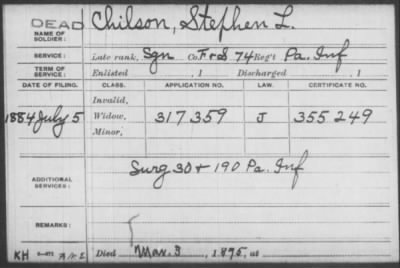 DEAD Chilson, Stephen L.
NAME OF
SOLDIER:
SERVICE: Late rank, Sgn Co. F & S 74 Reg't Pa. Inf
TERM OF
SERVICE: Enlisted , 1 Discharged , 1
DATE OF FILING. CLASS. APPLICATION NO. LAW. CERTIFICATE NO.
Invalid,
1884 July 5 Widow, 317359 J 355249
Minor,
Surg 30 + 190 Pa. Inf
ADDITIONAL
SERVICES:
REMARKS:
KH
Died Mar. 3, 1895, at